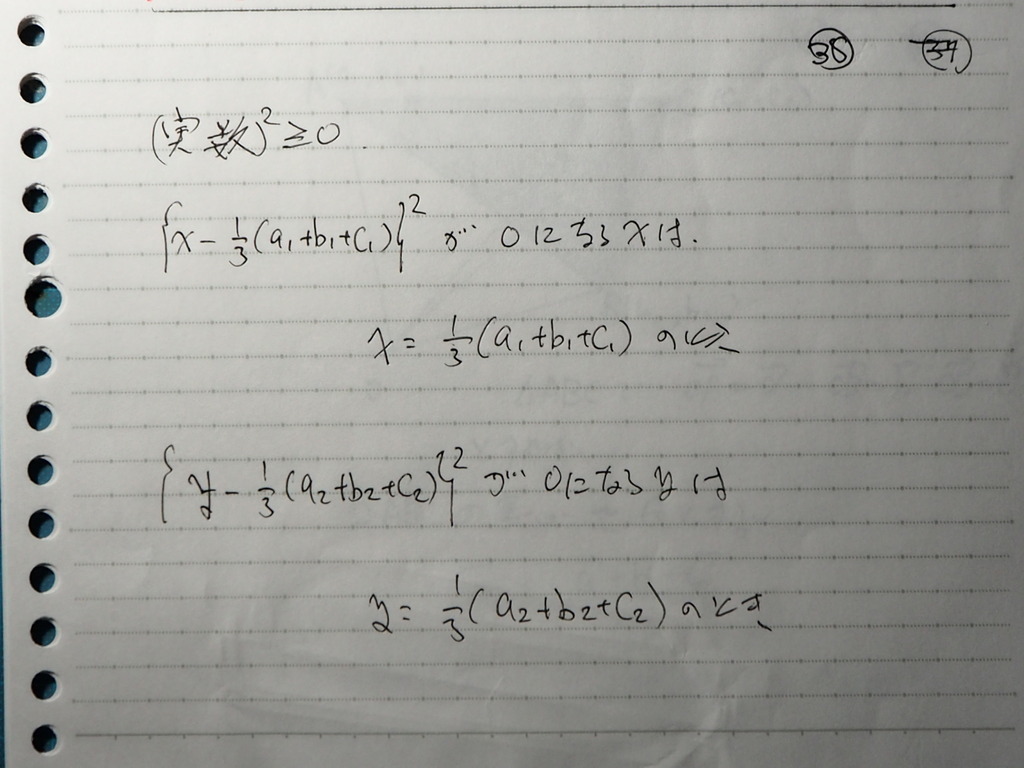 35 34
(実数)²≧0.
{x-1/3(a₁+b₁+c₁)}² が… 0になるxは.
x=1/3(a₁+b₁+c₁) のとき
{y-1/3(a₂+b₂+c₂)}² が… 0になるyは
y=1/3(a₂+b₂+c₂) のとき